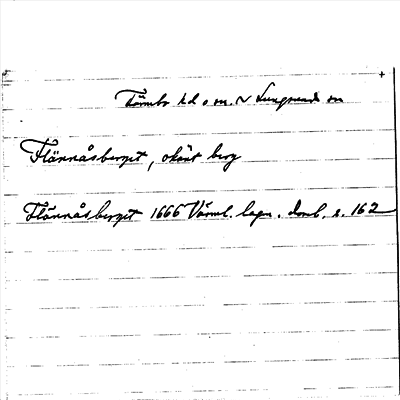 Färnebo hd o sn. N Lungsunds sn
Flännåsberget, okänt berg
Flännåsberget 1666 Värml. lagm. domb. s. 162